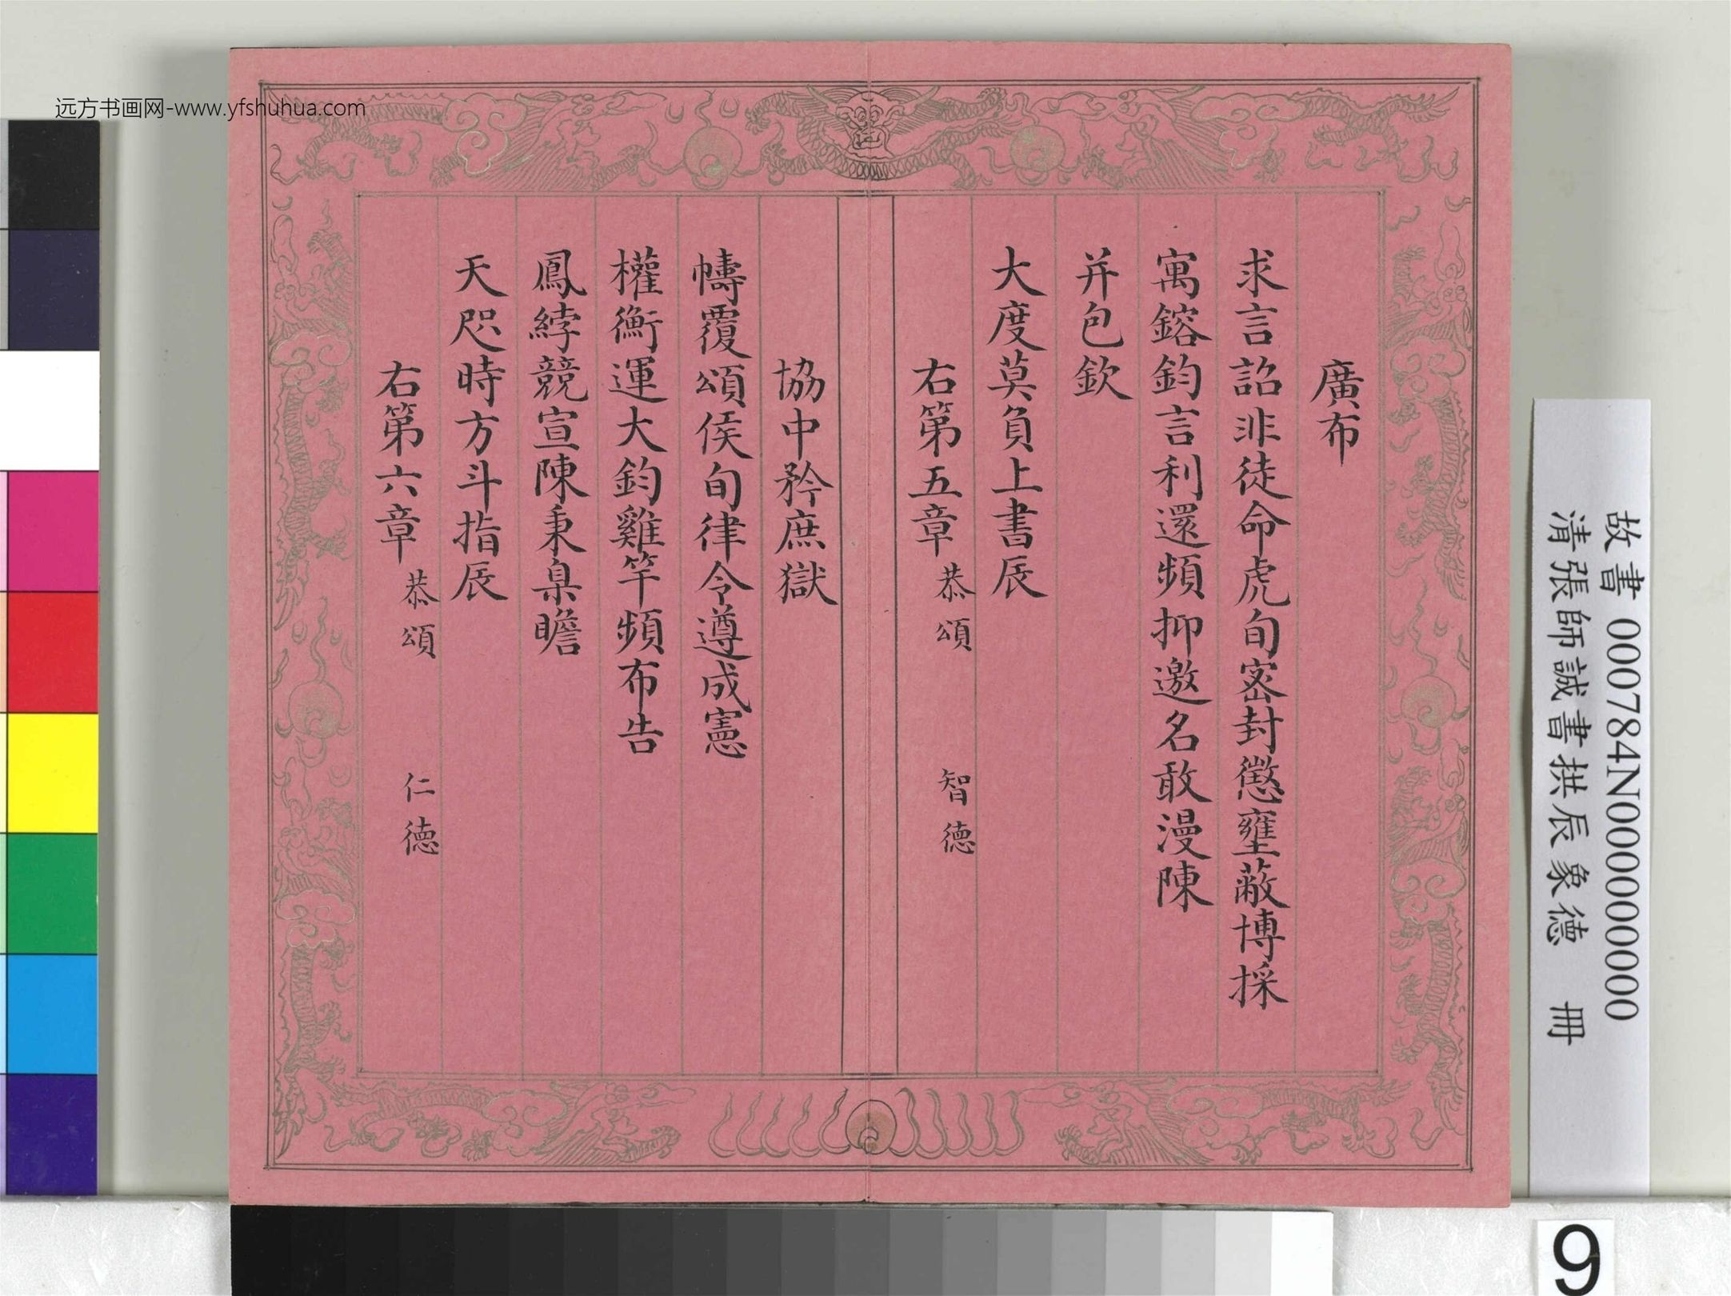 远方书画网-www.yfshuhua.com
廣布
求言詔非徒命虎旬密封懲壅蔽博採
寓鎔鈞言利還頻抑邀名敢漫陳
并包欽
大度莫負上書辰
右第五章 恭頌 智德
協中矜庶獄
幬覆頌侯旬律令遵成憲
權衡運大鈞雞竿頻布告
鳳綍競宣陳秉臬瞻
天咫時方斗指辰
右第六章 恭頌 仁德
故書 000784N000000000
清張師誠書拱辰象德 冊
9